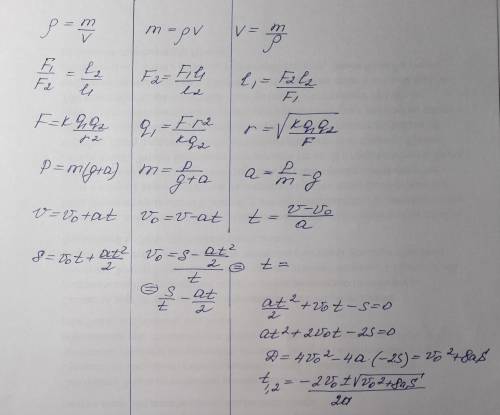 ρ = m/V   m = ρV   V = m/ρ
F₁/F₂ = l₂/l₁   F₂ = F₁l₁/l₂   l₁ = F₂l₂/F₁
F = k q₁q₂/r²   q₁ = Fr²/kq₂   r = √(kq₁q₂/F)
P = m(g+a)   m = P/(g+a)   a = P/m − g
v = v₀ + at   v₀ = v − at   t = (v−v₀)/a
S = v₀t + at²/2   v₀ = (S − at²/2)/t ⊜   t =
⊜ S/t − at/2
at²/2 + v₀t − S = 0
at² + 2v₀t − 2S = 0
D = 4v₀² − 4a·(−2S) = v₀² + 8aS
t₁,₂ = (−2v₀ ± √(v₀² + 8aS))/2a